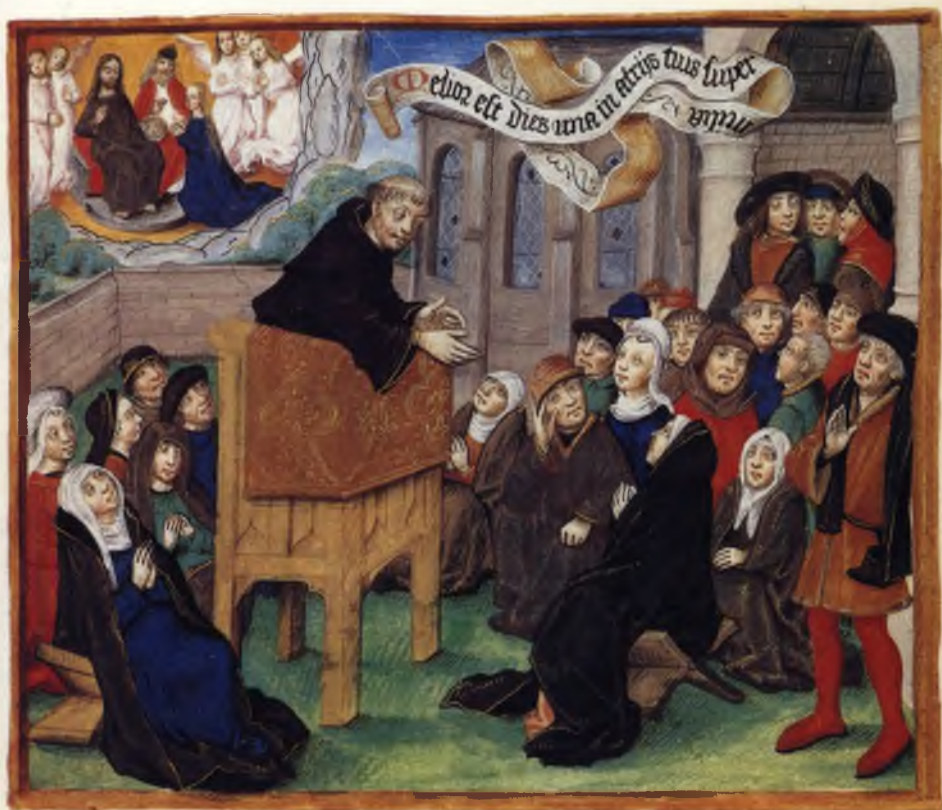 Melior est Dies una in Atrijs tuis super
milia